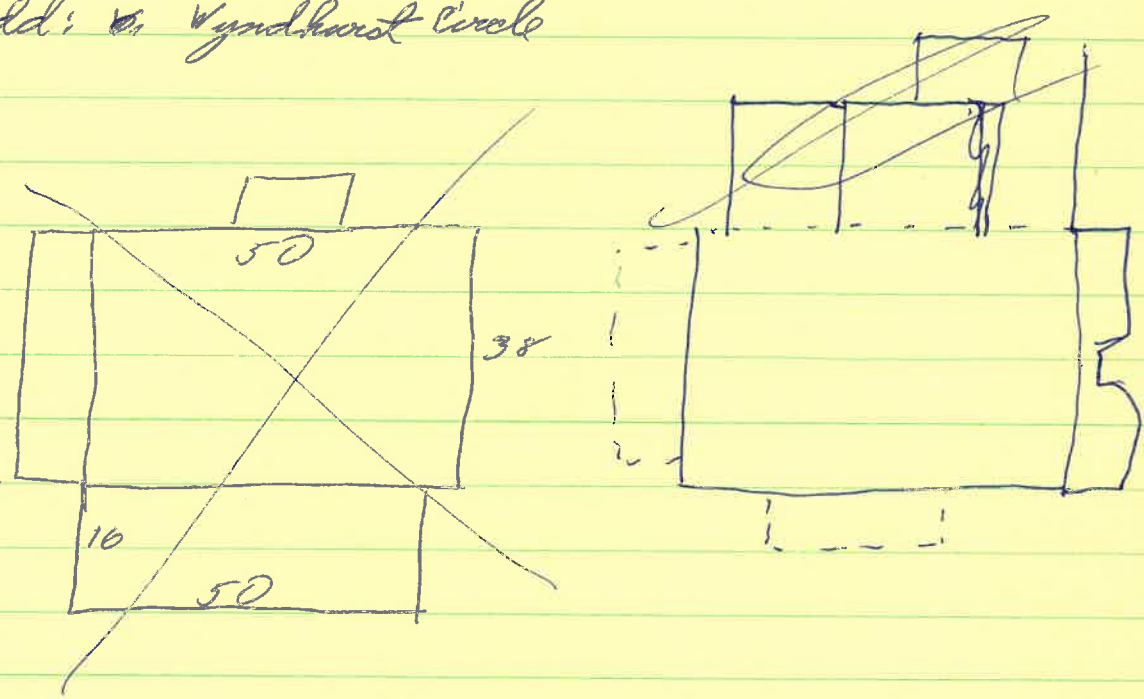 dd: Wyndhurst Circle
50
38
16
50